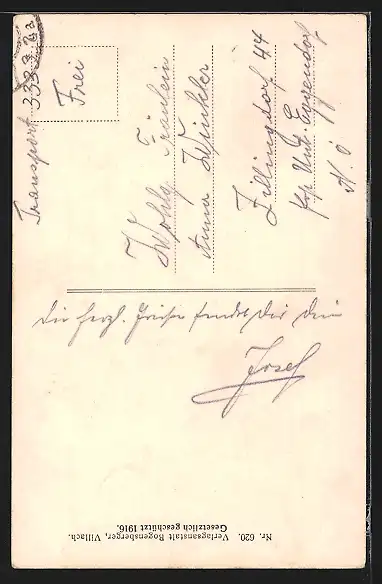 Transport 333923
Frei
Wohlg. Fräulein
Anna Winkler
Zillingdorf 44
Unt. Eggendorf
N. Ö
Die herzl. Grüße sendet Dir Dein
Josef
Nr. 620. Verlagsanstalt Bogensberger, Villach.
Gesetzlich geschützt 1916.